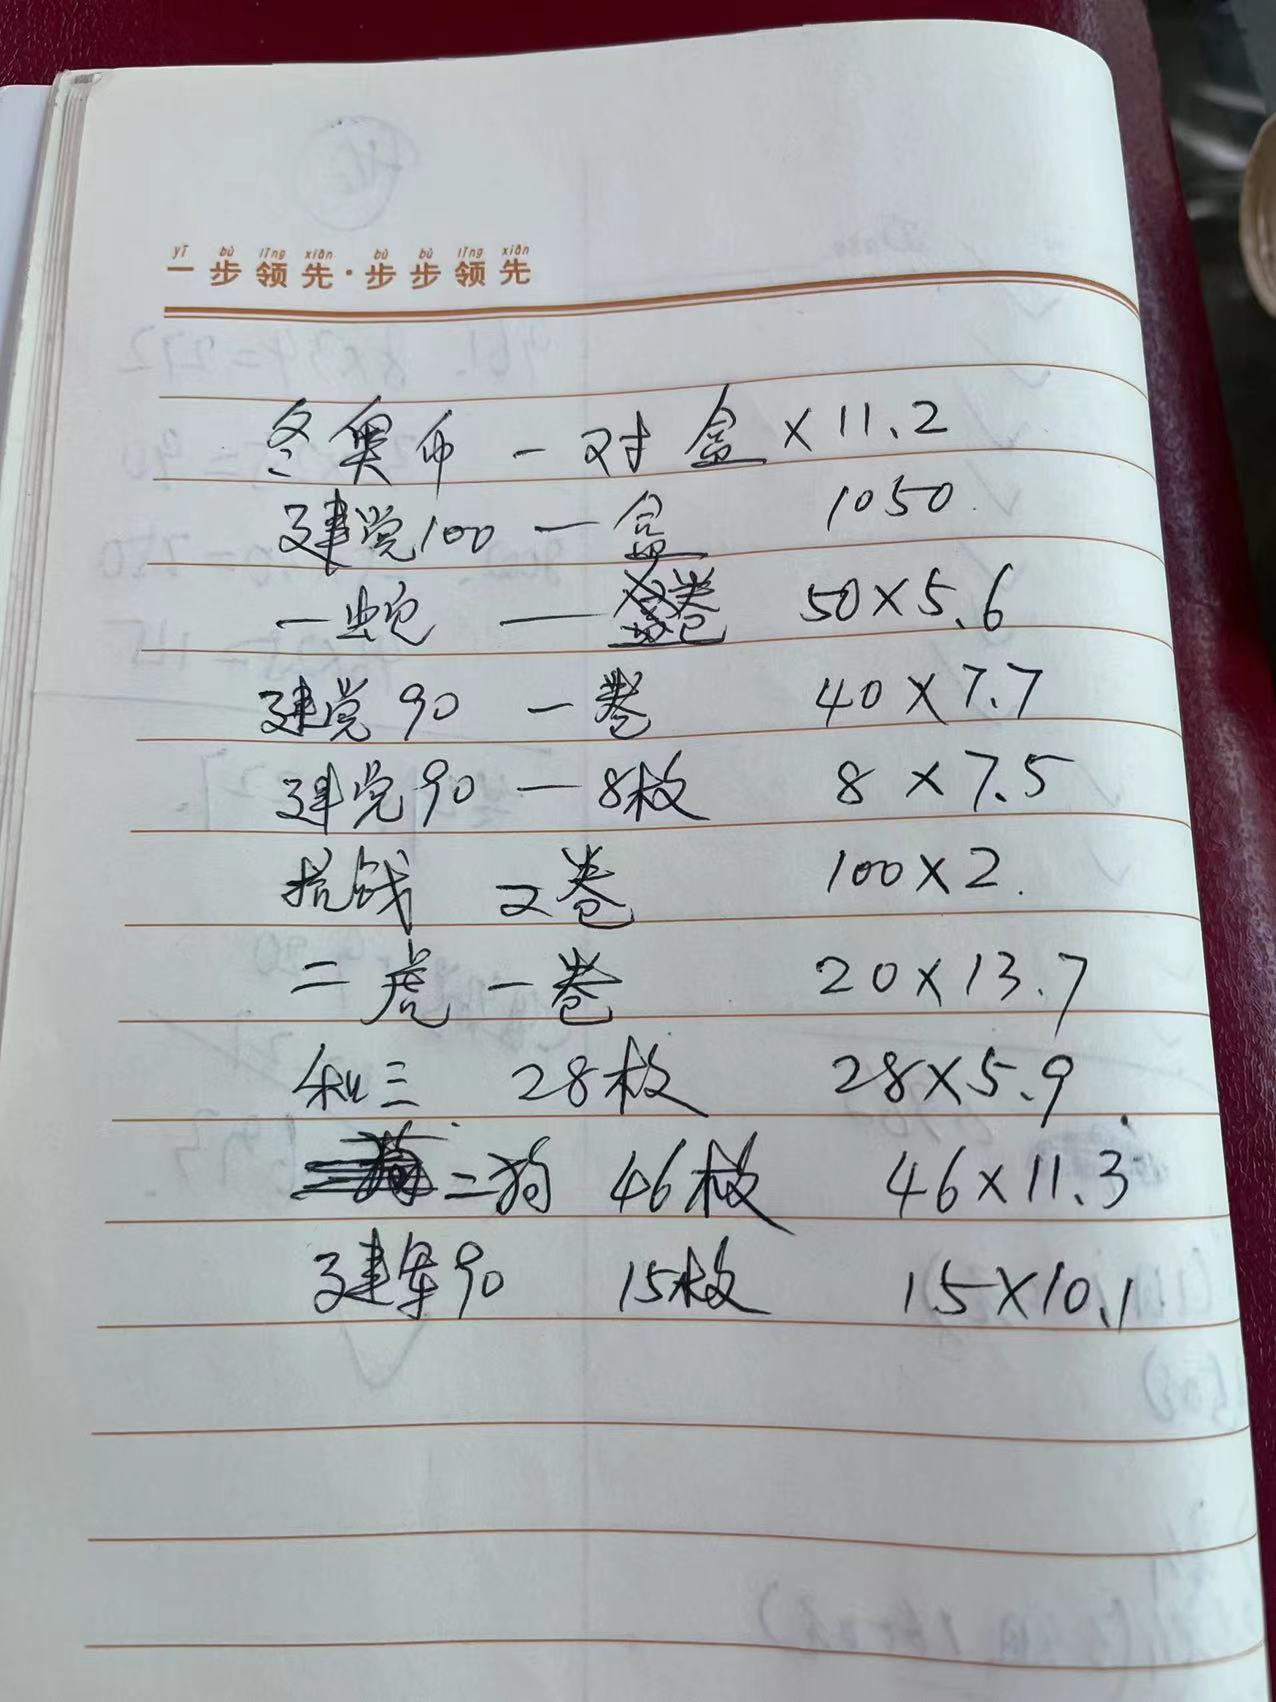 yī bù lǐng xiān bù bù lǐng xiān
一步领先·步步领先
冬奥币 一对盒 × 11.2
建党100 一盒 1050
一蛇 一卷 50×5.6
建党90 一卷 40×7.7
建党90 — 8枚 8×7.5
抗战 2卷 100×2.
二虎 一卷 20×13.7
和三 28枚 28×5.9
二狗 46枚 46×11.3
建军90 15枚 15×10.1